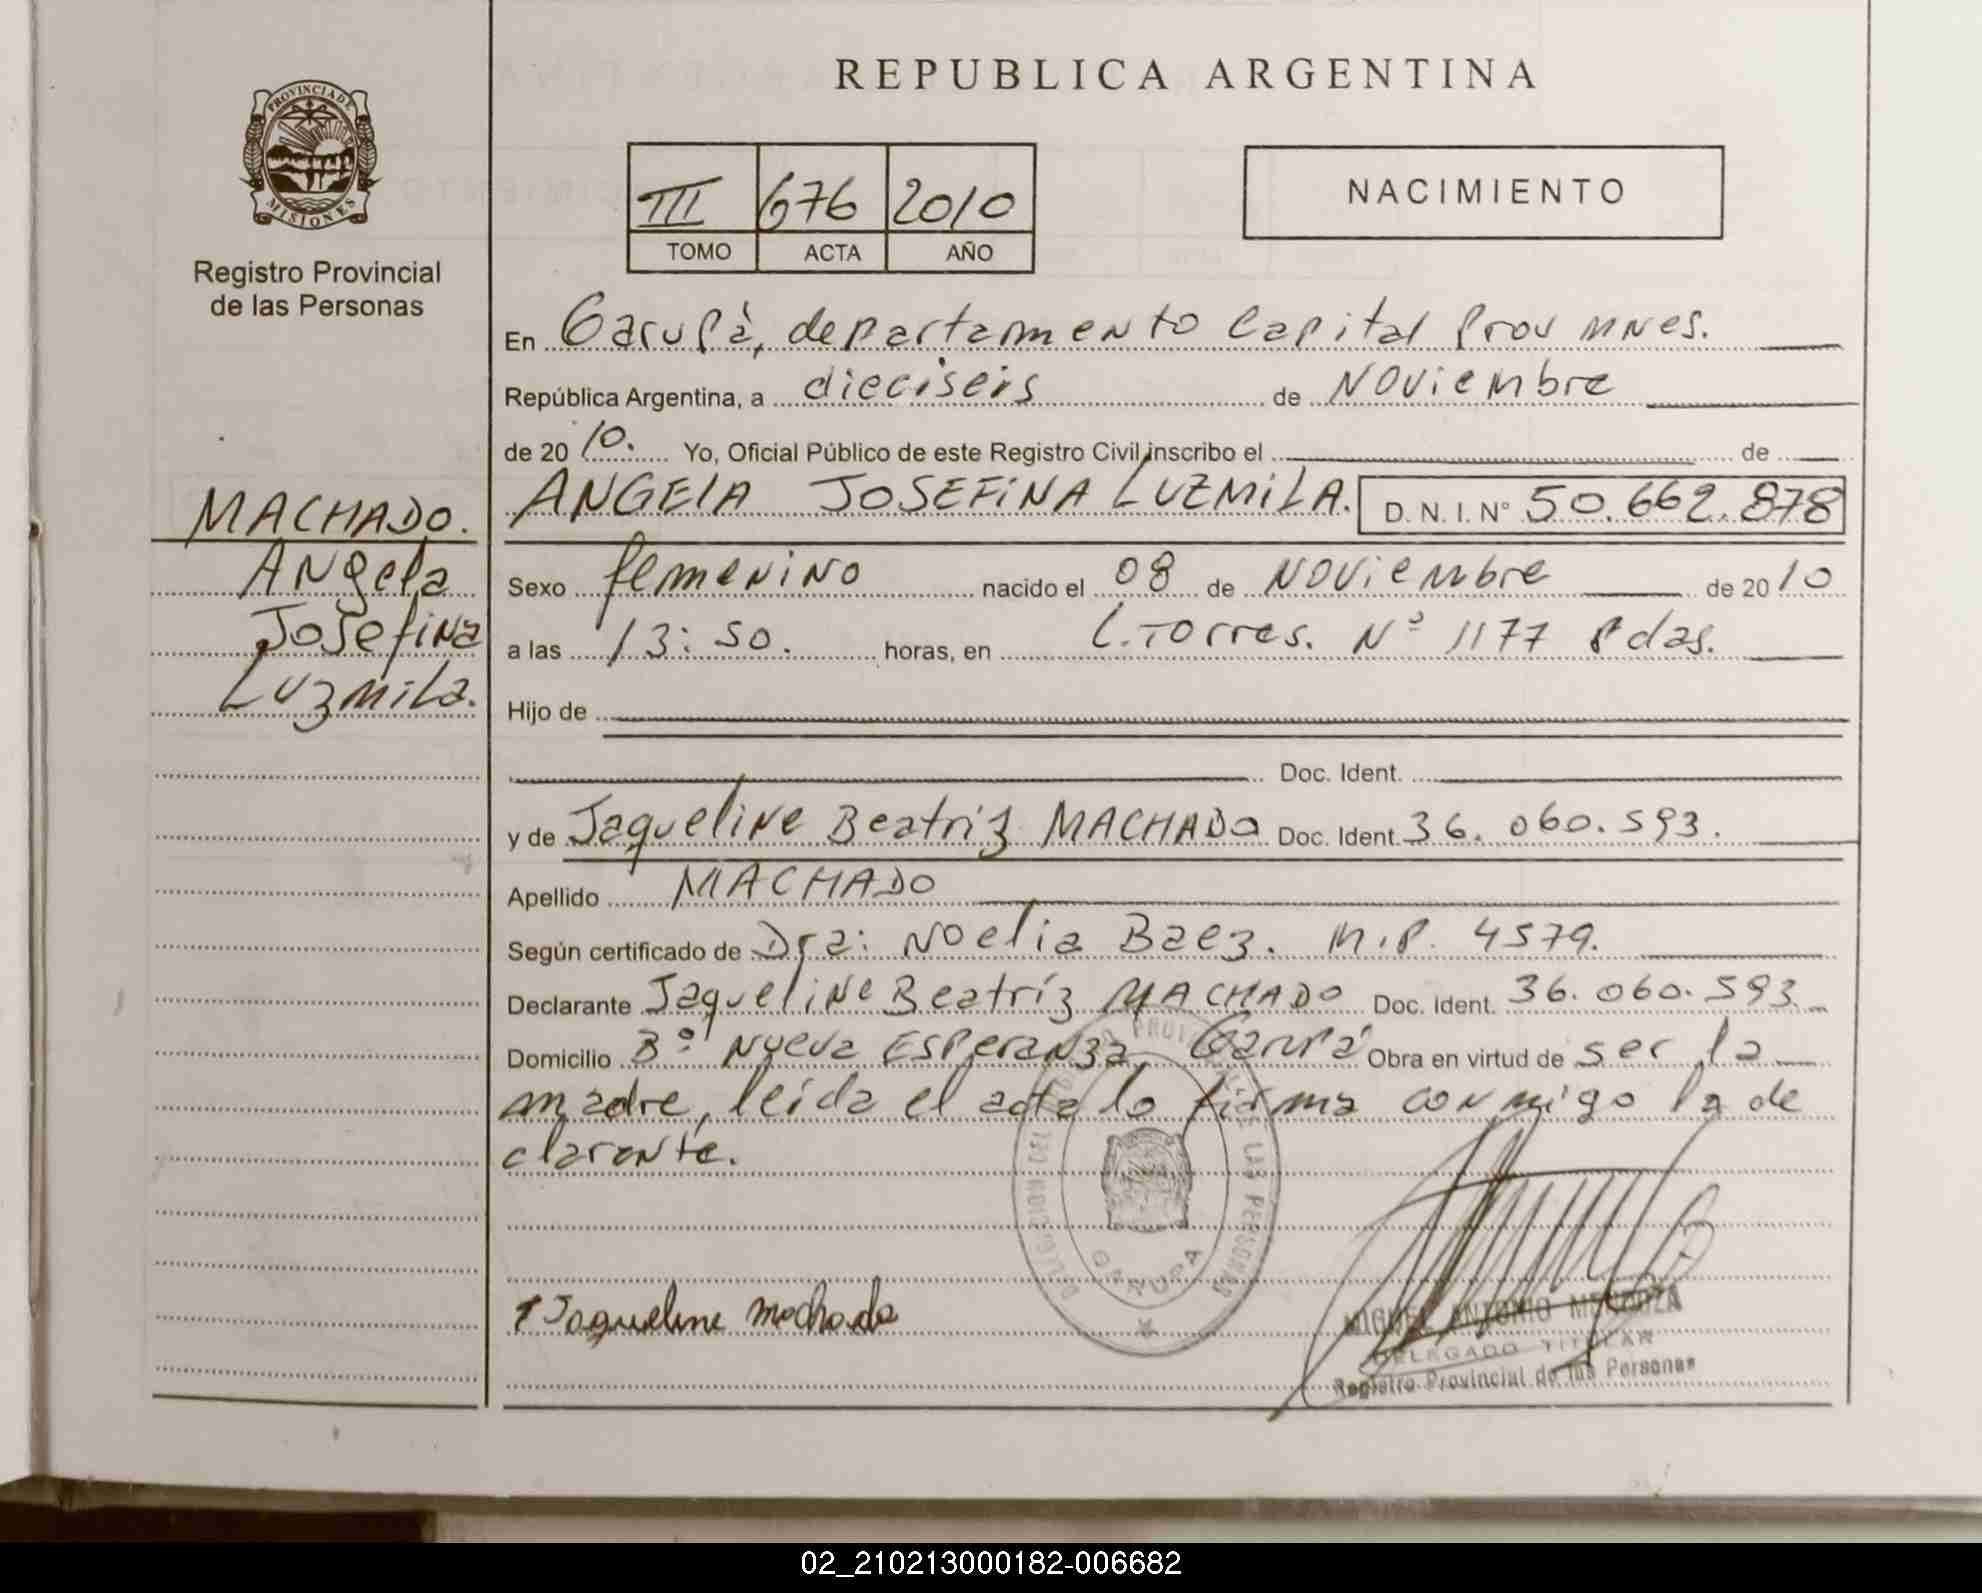 REPUBLICA ARGENTINA
PROVINCIA DE
MISIONES
Registro Provincial
de las Personas
III 676 2010
TOMO ACTA AÑO
NACIMIENTO
En Garupá, departamento Capital Prov mnes.
República Argentina, a dieciseis de Noviembre
de 2010. Yo, Oficial Público de este Registro Civil inscribo el de
ANGELA JOSEFINA LUZMILA. D. N. I. N° 50.662.878
MACHADO.
Angela
Josefina
Luzmila.
Sexo femenino nacido el 08 de Noviembre de 2010
a las 13:50. horas, en L. Torres. Nº 1177 Pdas.
Hijo de
Doc. Ident.
y de Jaqueline Beatriz MACHADO Doc. Ident. 36.060.593.
Apellido MACHADO
Según certificado de Dra: Noelia Baez. M.P. 4579.
Declarante Jaqueline Beatríz MACHADO Doc. Ident. 36.060.593
Domicilio Bº Nueva Esperanza Garupá Obra en virtud de ser la
madre, leída el acta lo firma conmigo la de
clarante.
LAS PERSONAS
GARUPA
Jaqueline Machado
MIGUEL ANTONIO MENDOZA
DELEGADO TITULAR
Registro Provincial de las Personas
02_210213000182-006682